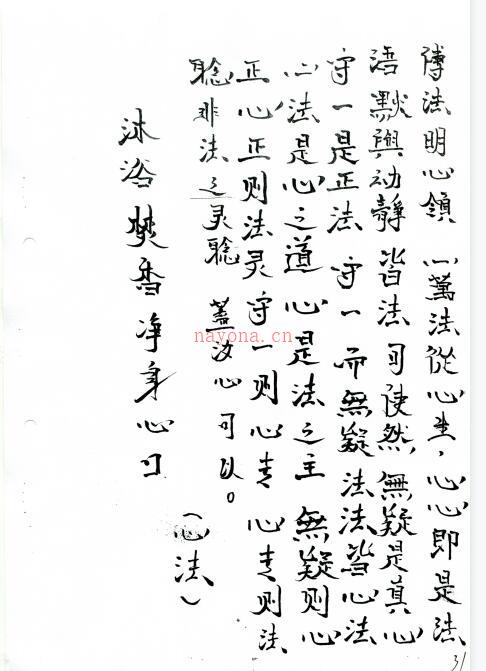 傳法明心領 心萬法從心生，心心即是法
语默與动静 皆法可使然 無疑是真心
守一是正法 守一而無疑 法法皆心法
心法是心之道 心是法之主 無疑则心
正心正则法灵 守一则心专 心专则法
聪非法之灵聪 蓋汝心可以。
（心法）
沐浴焚香净身心口
31
nayona.cn